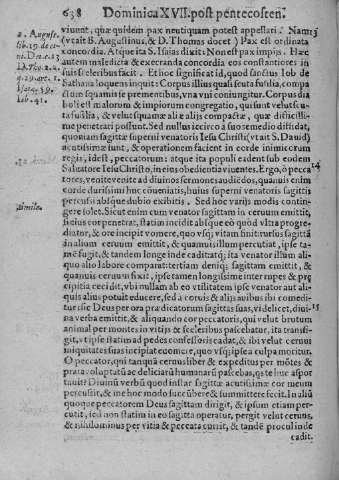 638 Dominica XVII. post pentecosten.
viuunt, quæ quidem pax neutiquam potest appellari. Nam
(vt ait B. Augustinus, & D. Thomas docet) Pax est ordinata
concordia. Atque ita S. Isaias dixit: Non est pax impijs. Hæc
autem maledicta & execranda concordia eos constantiores in
suis sceleribus facit. Et hoc significat id, quod sanctus Iob de
Sathana loquens inquit: Corpus illius quasi scuta fusilia, compactum
squamis se prementibus, vna vni coniungitur. Corpus dia
boli est malorum & impiorum congregatio, qui sunt velut scuta
fusilia, & velut squamæ aliæ alijs compactæ, quæ difficillime
penetrari possunt. Sed nullus it circo a suo se medio diffidat,
quoniam sagittæ superni venatoris Iesu Christi (vt ait S. Dauid)
acutissimæ sunt, & operationem faciunt in corde inimicorum
regis, id est, peccatorum: atque ita populi cadent sub eodem
Saluatore Iesu Christo, in eius obedientia viuentes. Ergo, ò pecca
tores, venite venite ad diuinos sermones audiendos, quauis enim
corde durissimi huc cōueniatis, huius superni venatoris sagittis
percussi absque dubio exibitis. Sed hoc varijs modis contingere
solet. Sicut enim cum venator sagittam in ceruum emittit,
si eius cor penetrat, statim incidit absque eò quòd vltra progrediatur,
& cor incipit vomere, quo vsq; vitam finit: rursus sagittā
in alium ceruum emittit, & quamuis illum percutiat, ipse tamē
fugit, & tandem longe inde caditatq; ita venator illum aliquo
alio labore comparat: tertiam deniq; sagittam emittit, &
quamuis ceruum fixit, ipse tamen longissime interrumpes & præ
cipitia cecidit, vbi nullam ab eo vtilitatem ipse venator aut aliquis
alius potuit educere, sed a coruis & alijs auibus ibi comeditur
sic Deus per ora prædicatorum sagittas suas, videlicet, diuina
verba emittit, & aliquando cor peccatoris, qui velut brutum
animal per montes in vitijs & sceleribus pascebatur, ita transfigit,
vt ipse statim ad pedes confessoris cadat, & ibi velut ceruus
iniquitates suas incipiat euomere, quo vsq; ipsa culpa moritur.
O peccator, qui tanquā ceruus liber & expeditus per mōtes &
prata voluptatū ac deliciarū humanarū pascebas, qs te huc aspor
tauit? Diuinū verbū quod instar sagittæ acutissimæ cor meum
percussit, & me hoc modo succūbere & summittere fecit. In aliū
quoque peccatorem Deus sagittam dirigit, & ipsum etiam percutit,
sed non statim in eo sagitta operatur, pergit velut ceruus,
& nihilominus per vitia & peccata currit, & tandē procul inde
cadit.
a. August.
lib. 19. de ci-
Isaiæ 59.
Iob. 41.
14
Simile.
15